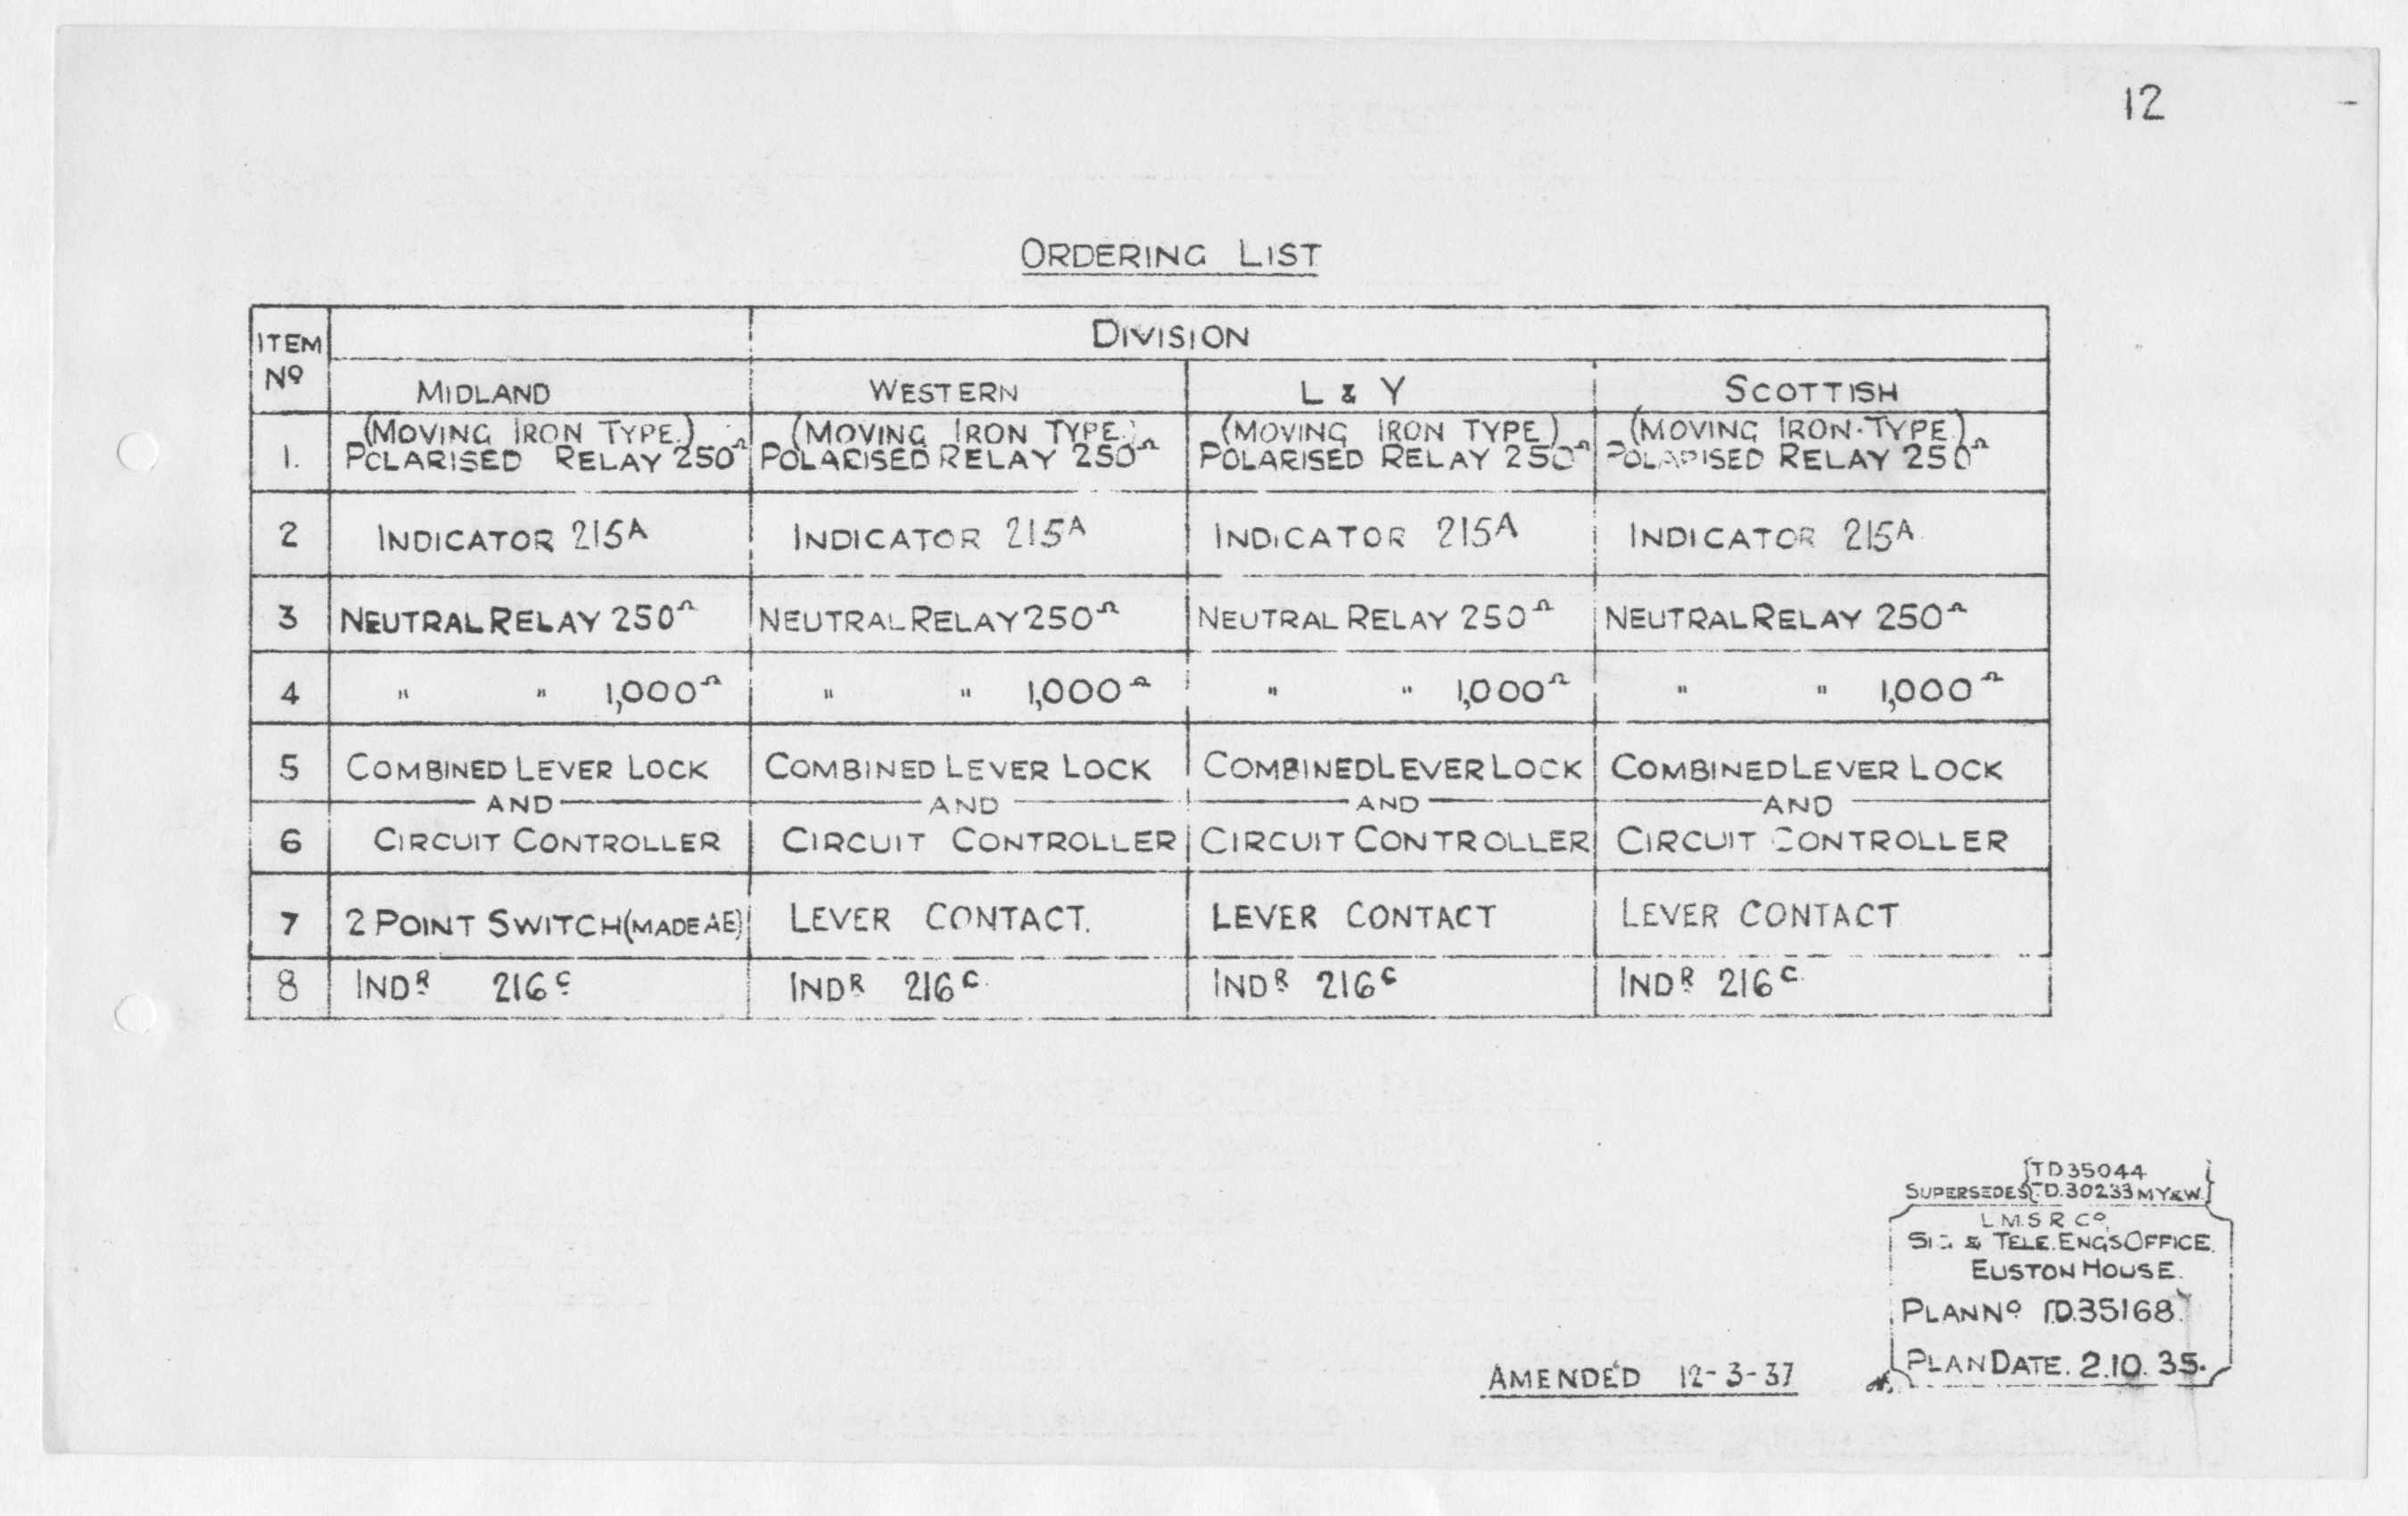 12
ORDERING LIST
ITEM Nº DIVISION
MIDLAND WESTERN L & Y SCOTTISH
(MOVING IRON TYPE.) (MOVING IRON TYPE.) (MOVING IRON TYPE) (MOVING IRON-TYPE.)
1. POLARISED RELAY 250Ω POLARISED RELAY 250Ω POLARISED RELAY 250Ω POLARISED RELAY 250Ω
2 INDICATOR 215A INDICATOR 215A INDICATOR 215A INDICATOR 215A
3 NEUTRAL RELAY 250Ω NEUTRAL RELAY 250Ω NEUTRAL RELAY 250Ω NEUTRAL RELAY 250Ω
4 " " 1,000Ω " " 1,000Ω " " 1,000Ω " " 1,000Ω
5 COMBINED LEVER LOCK COMBINED LEVER LOCK COMBINED LEVER LOCK COMBINED LEVER LOCK
AND AND AND AND
6 CIRCUIT CONTROLLER CIRCUIT CONTROLLER CIRCUIT CONTROLLER CIRCUIT CONTROLLER
7 2 POINT SWITCH (MADE AE) LEVER CONTACT. LEVER CONTACT LEVER CONTACT
8 INDR 216C INDR 216C INDR 216C INDR 216C
TD35044
SUPERSEDES TD.30233 MY&W.
L.M.S R Cº
SIG & TELE. ENGS OFFICE.
EUSTON HOUSE.
PLAN Nº T.D.35168.
PLAN DATE. 2.10.35.
AMENDED 12-3-37